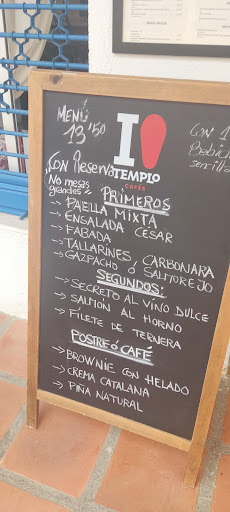 MENÚ
13'50
I
TEMPLO
CAFÉS
CON 1
Con Reserva
No mesas
grandes
PRIMEROS
→ PAELLA MIXTA
→ ENSALADA CÉSAR
→ FABADA
→ TALLARINES CARBONARA
→ GAZPACHO Ó SALMOREJO
SEGUNDOS:
→ SECRETO AL VINO DULCE
→ SALMÓN AL HORNO
→ FILETE DE TERNERA
POSTRE Ó CAFÉ
→ BROWNIE CON HELADO
→ CREMA CATALANA
→ PIÑA NATURAL